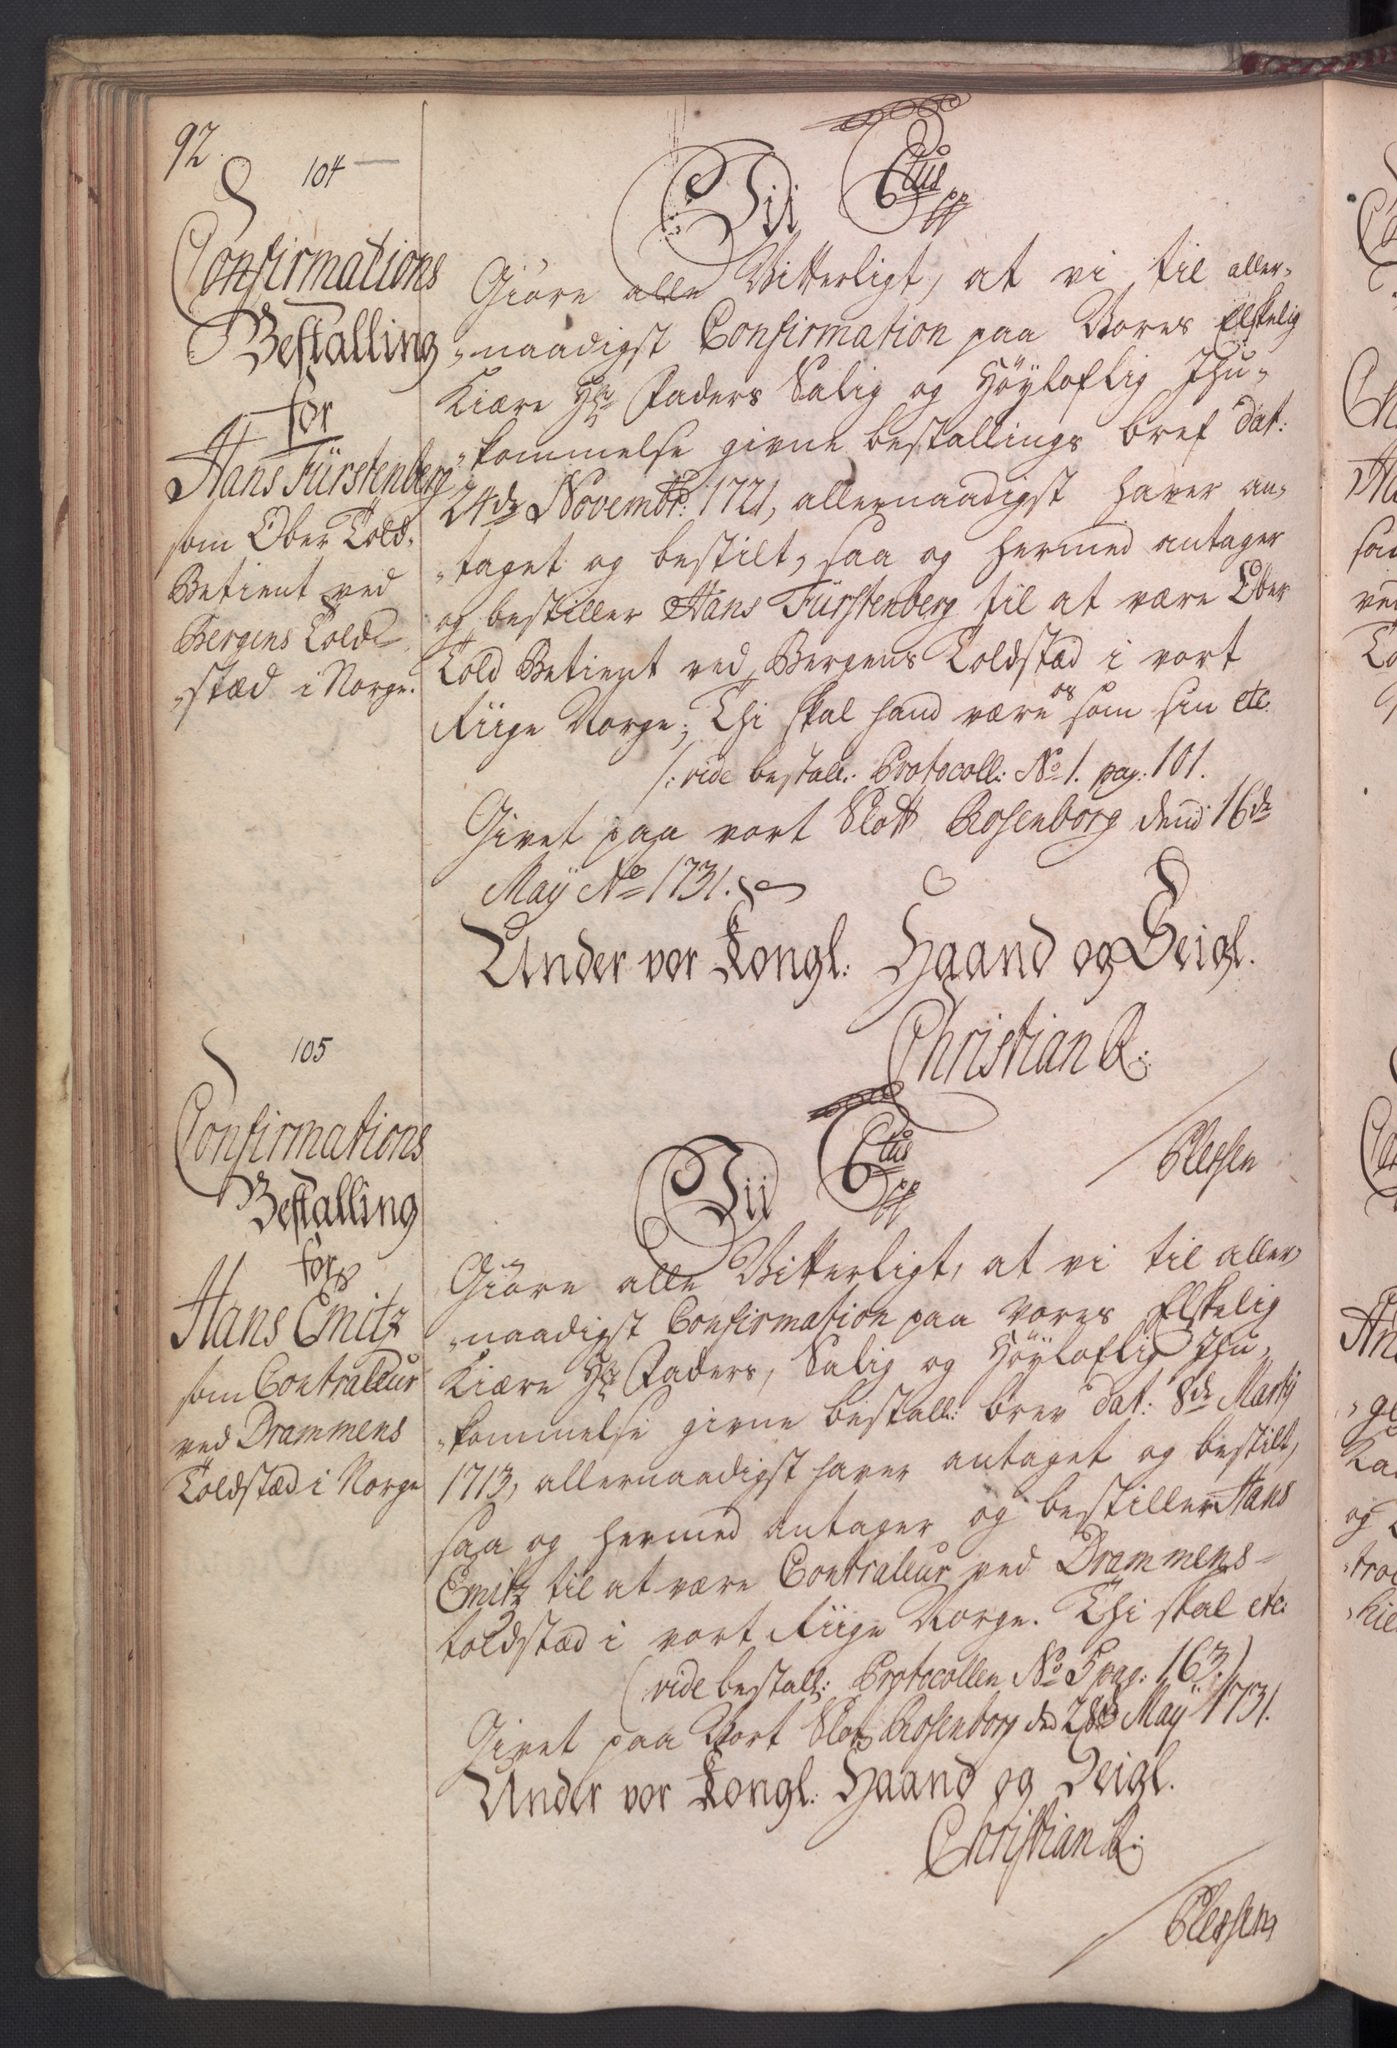 92.
104
Confirmations
Bestalling
for
Hans Fürstenberg
som Ober Told-
Betient ved
Bergens Told-
-stæd i Norge.
Vii Ctus pp
Giöre alle Vitterligt, at vi til aller-
-naadigst Confirmation paa Vores Elskelig
Kiære Hr Faders Salig og Höyloflig Ihu-
-kommelse givne bestallings bref dat:
24de Novembr: 1721, allernaadigst haver an-
-taget og bestilt, saa og hermed antager
og bestiller Hans Fürstenberg til at være Ober
Told Betient ved Bergens Toldstæd i vort
Riige Norge; Thi skal hand være os som sin etc.
/: vide bestall: Protocoll: No 1. pag: 101.
Givet paa vort Slott Rosenborg dend 16de
Maÿ Ao 1731.
Under vor Kongl: Haand og Seigl.
Christian R:
/ Plessen
105
Confirmations
Bestalling
for
Hans Emitz
som Contralleur
ved Drammens
Toldstæd i Norge
Vii Ctus pp
Giöre alle Vitterligt, at vi til aller-
-naadigst Confirmation paa Vores Elskelig
Kiære Hr Faders, Salig og Höyloflig Ihu-
-kommelse givne bestall: brev dat: 8de Martij
1713, allernaadigst haver antaget og bestilt,
saa og hermed antager og bestiller Hans
Emitz til at være Contralleur ved Drammens-
toldstæd i vort Riige Norge. Thi skal etc:
(vide bestall: Protocollen No 5 pag: 163.)
Givet paa Vort Slot Rosenborg dend 28de Maÿ 1731.
Under vor Kongl: Haand og Seigl.
Christian R:
/ Plessen